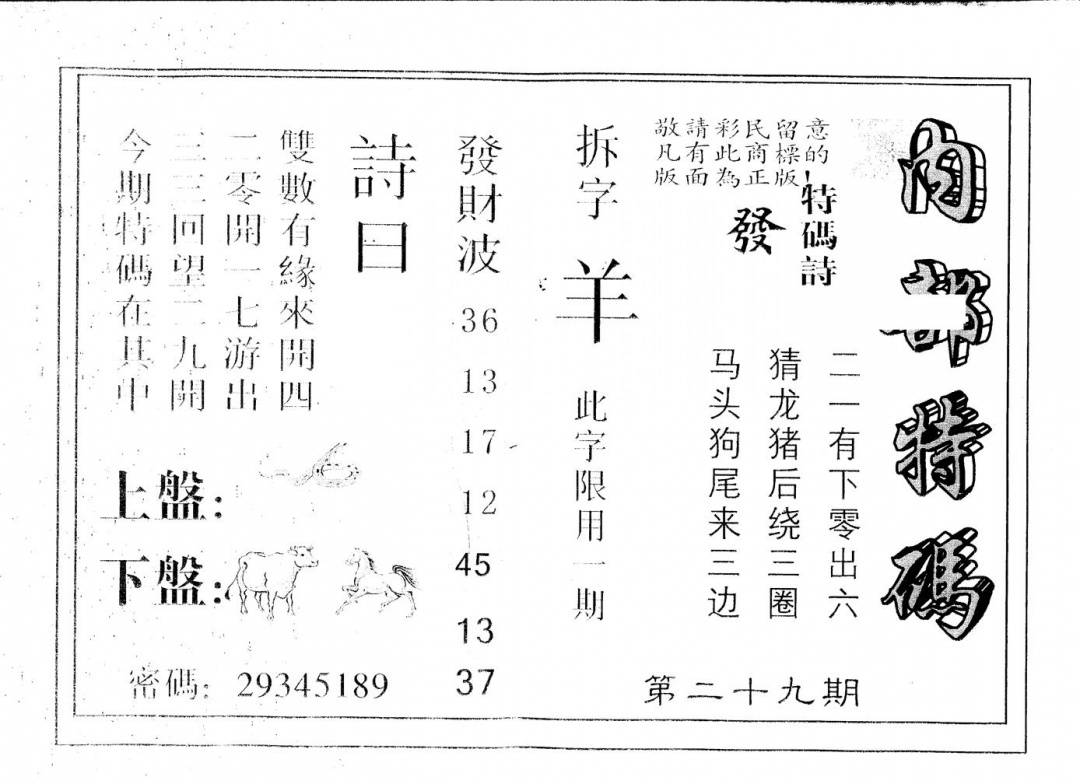 内部特碼
敬請彩民留意
凡有此商標的
版面為正版
特碼詩
發
二一有下零出六
猜龙猪后绕三圈
马头狗尾来三边
第二十九期
拆字
羊
此字限用一期
發財波
36
13
17
12
45
13
37
詩曰
雙數有緣來開四
二零開一七游出
三三回望二九開
今期特碼在其中
上盤:
下盤:
密碼: 29345189